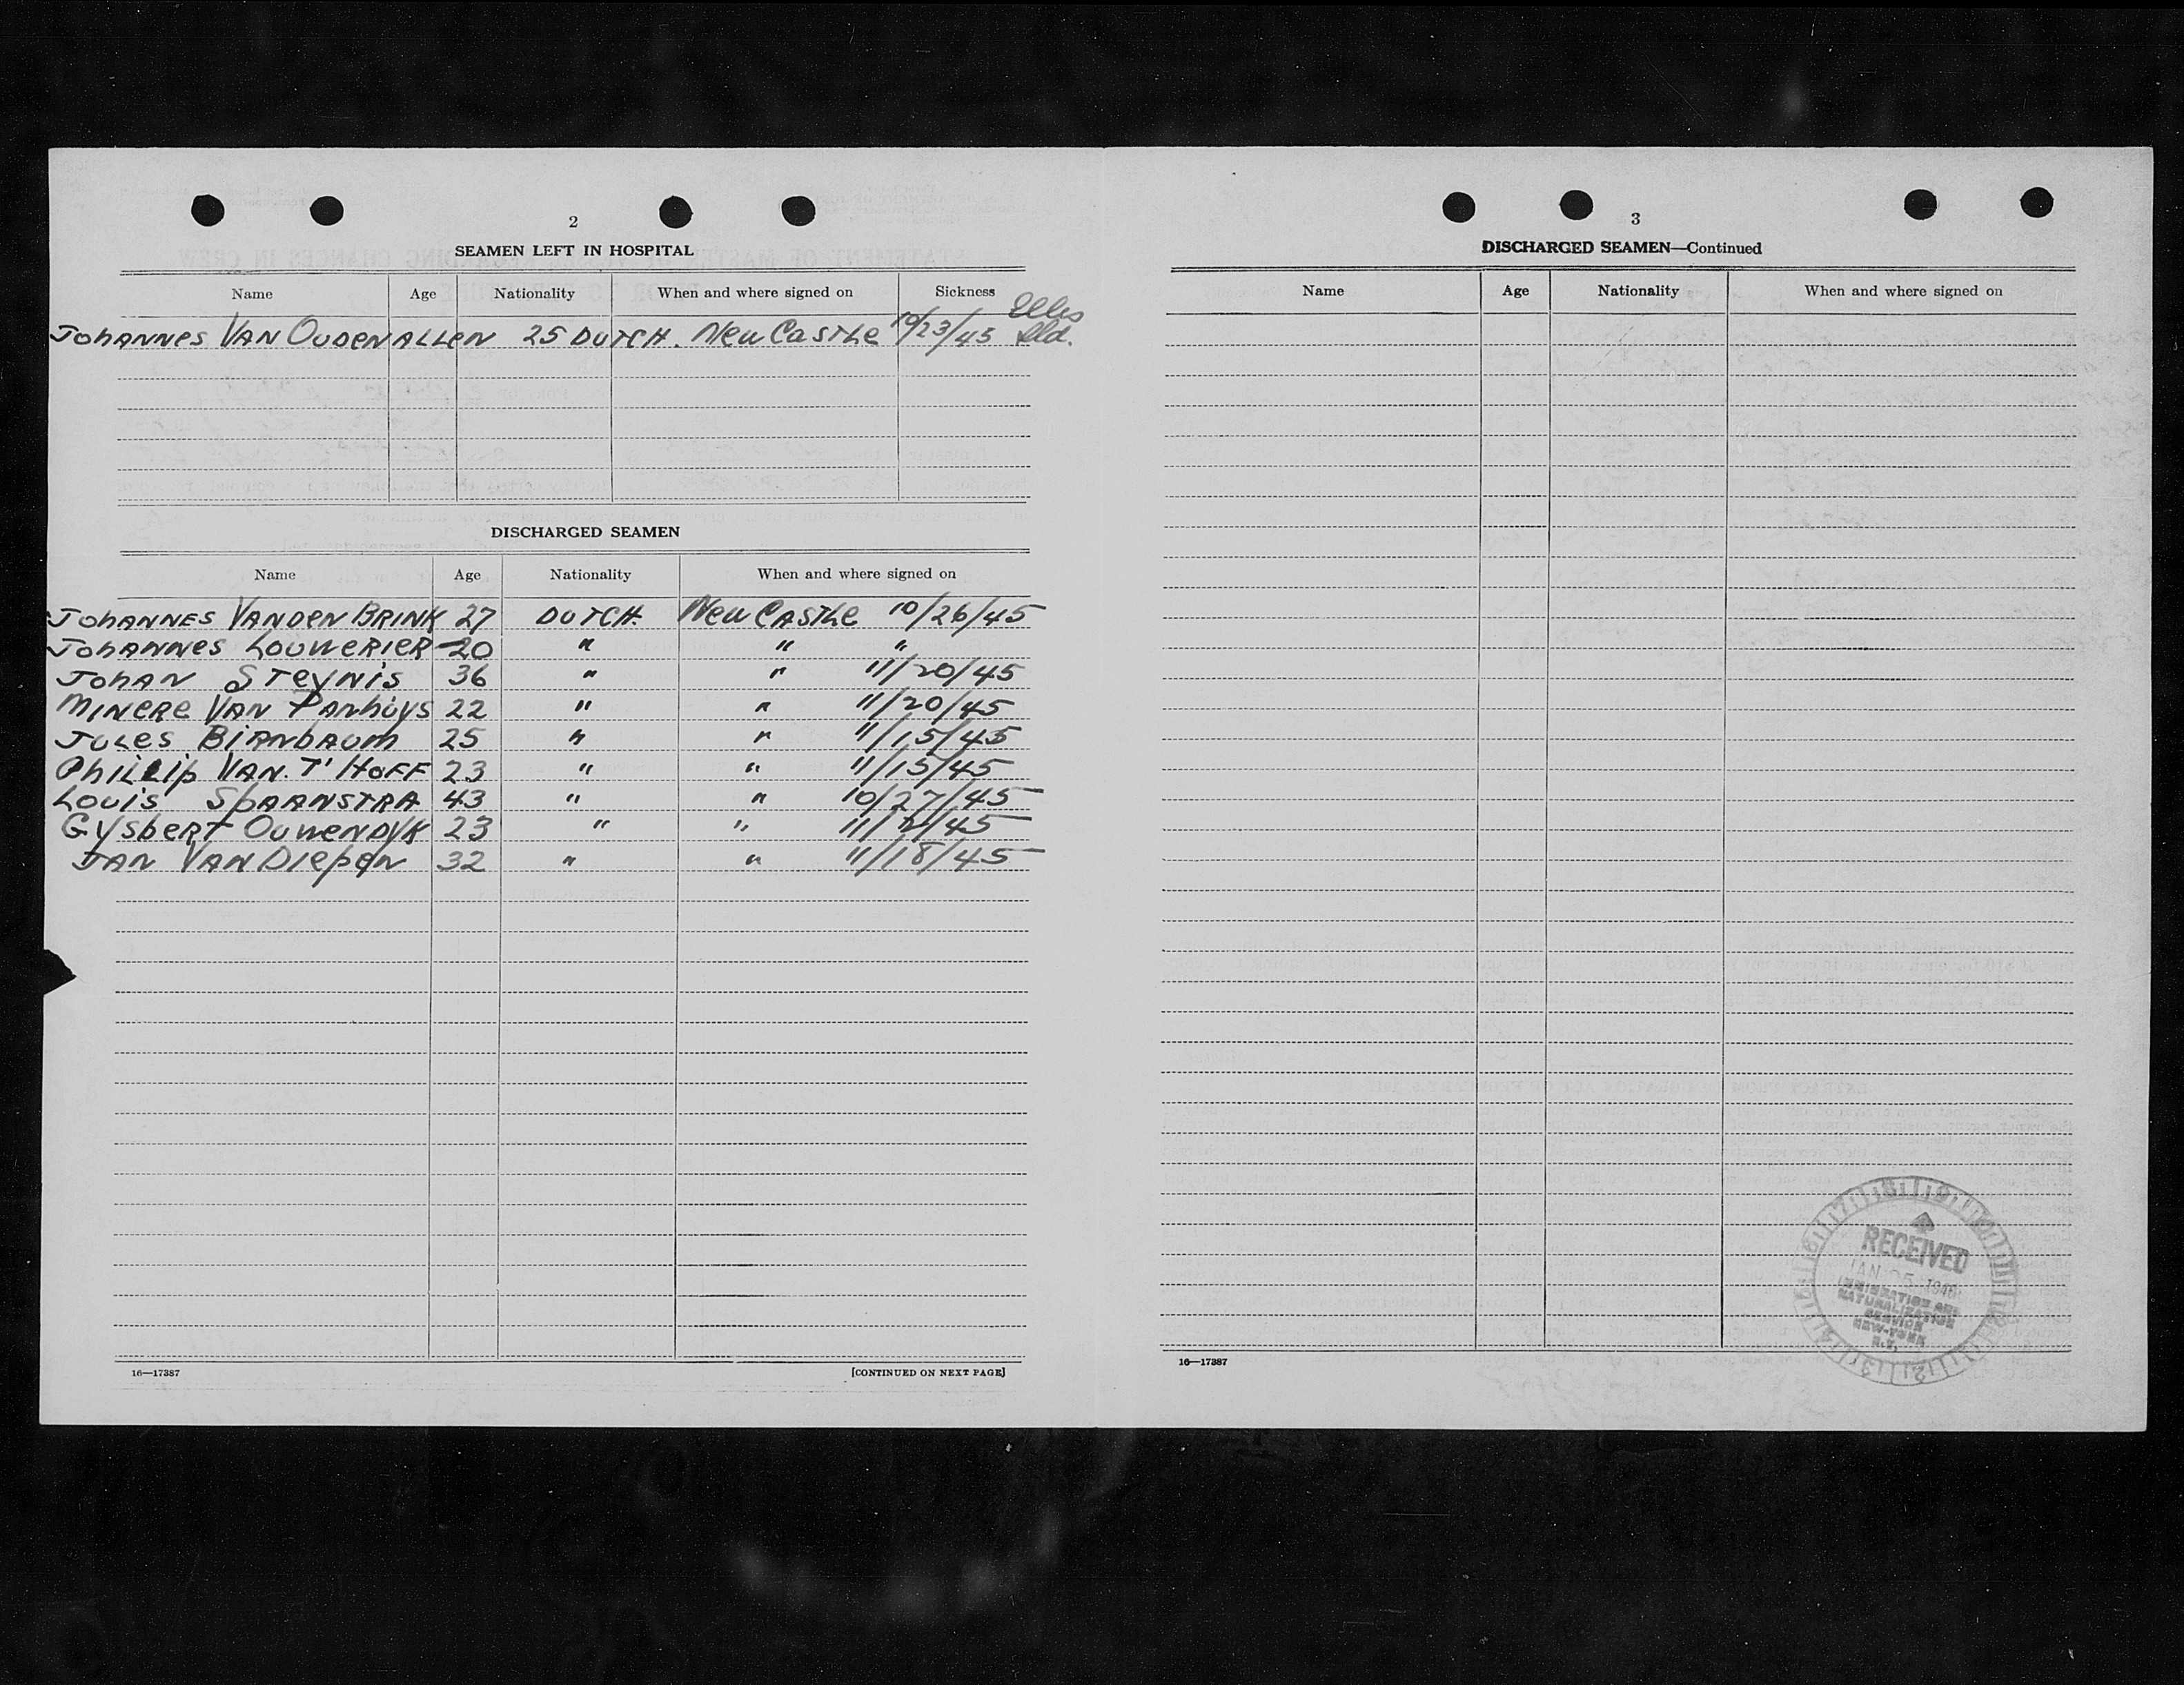 2
SEAMEN LEFT IN HOSPITAL
Name Age Nationality When and where signed on Sickness
Johannes Van Oudenallen 25 Dutch. New Castle 10/23/45 Ellis Sld.
DISCHARGED SEAMEN
Name Age Nationality When and where signed on
Johannes Vanden Brink 27 Dutch. New Castle 10/26/45
Johannes Louwerier 20 " " "
Johan Steynis 36 " " 11/20/45
Minere Van Panhuys 22 " " 11/20/45
Jules Birnbaum 25 " " 11/15/45
Phillip Van. T' Hoff 23 " " 11/15/45
Louis Spaanstra 43 " " 10/27/45
Gysbert Ouwendyk 23 " " 11/2/45
Jan Van Diepen 32 " " 11/18/45
16—17387 [CONTINUED ON NEXT PAGE]
3
DISCHARGED SEAMEN—Continued
Name Age Nationality When and where signed on
RECEIVED
JAN 25 1946
IMMIGRATION AND
NATURALIZATION
SERVICE
NEW-YORK
N.Y.
16—17387